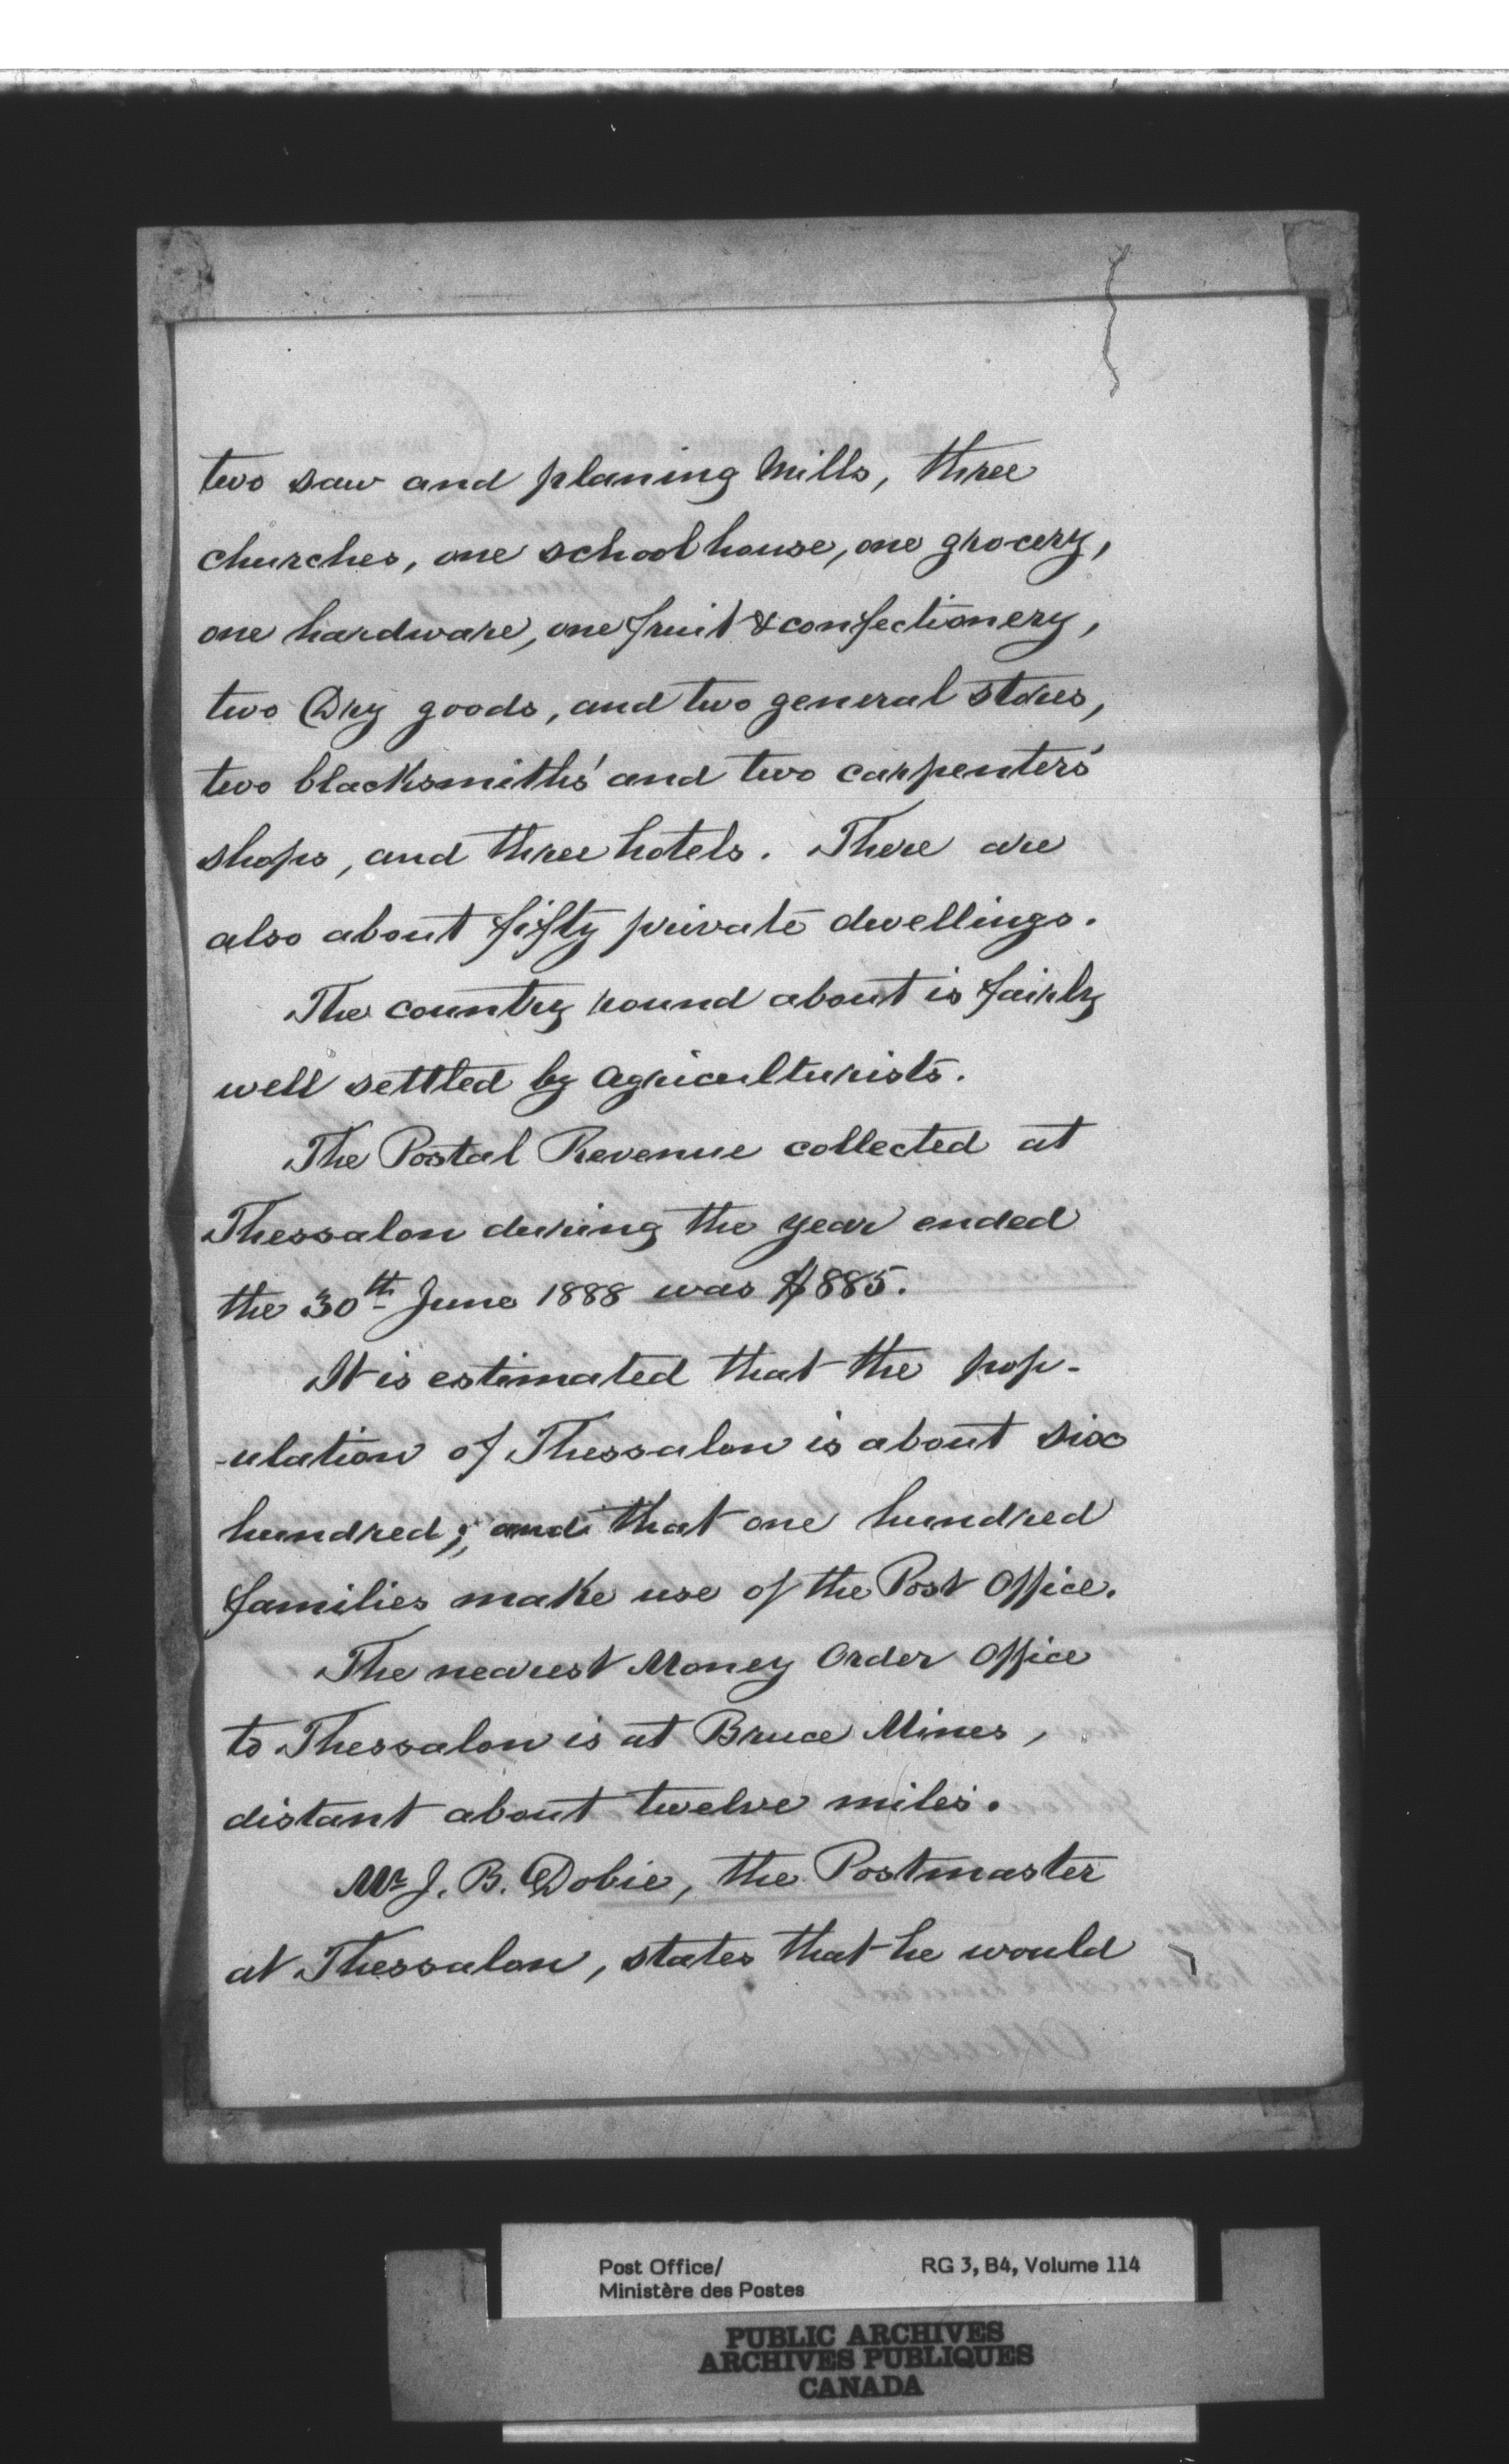 two saw and planing Mills, three
churches, one school house, one grocery,
one hardware, one fruit & confectionery,
two Dry goods, and two general stores,
two blacksmiths' and two carpenters'
shops, and three hotels. There are
also about fifty private dwellings.
The country round about is fairly
well settled by agriculturists.
The Postal Revenue collected at
Thessalon during the year ended
the 30th June 1888 was $885.
It is estimated that the pop-
-ulation of Thessalon is about six
hundred; and that one hundred
families make use of the Post Office.
The nearest Money Order Office
to Thessalon is at Bruce Mines,
distant about twelve miles.
Mr J. B. Dobie, the Postmaster
at Thessalon, states that he would
Post Office/
Ministère des Postes
RG 3, B4, Volume 114
PUBLIC ARCHIVES
ARCHIVES PUBLIQUES
CANADA